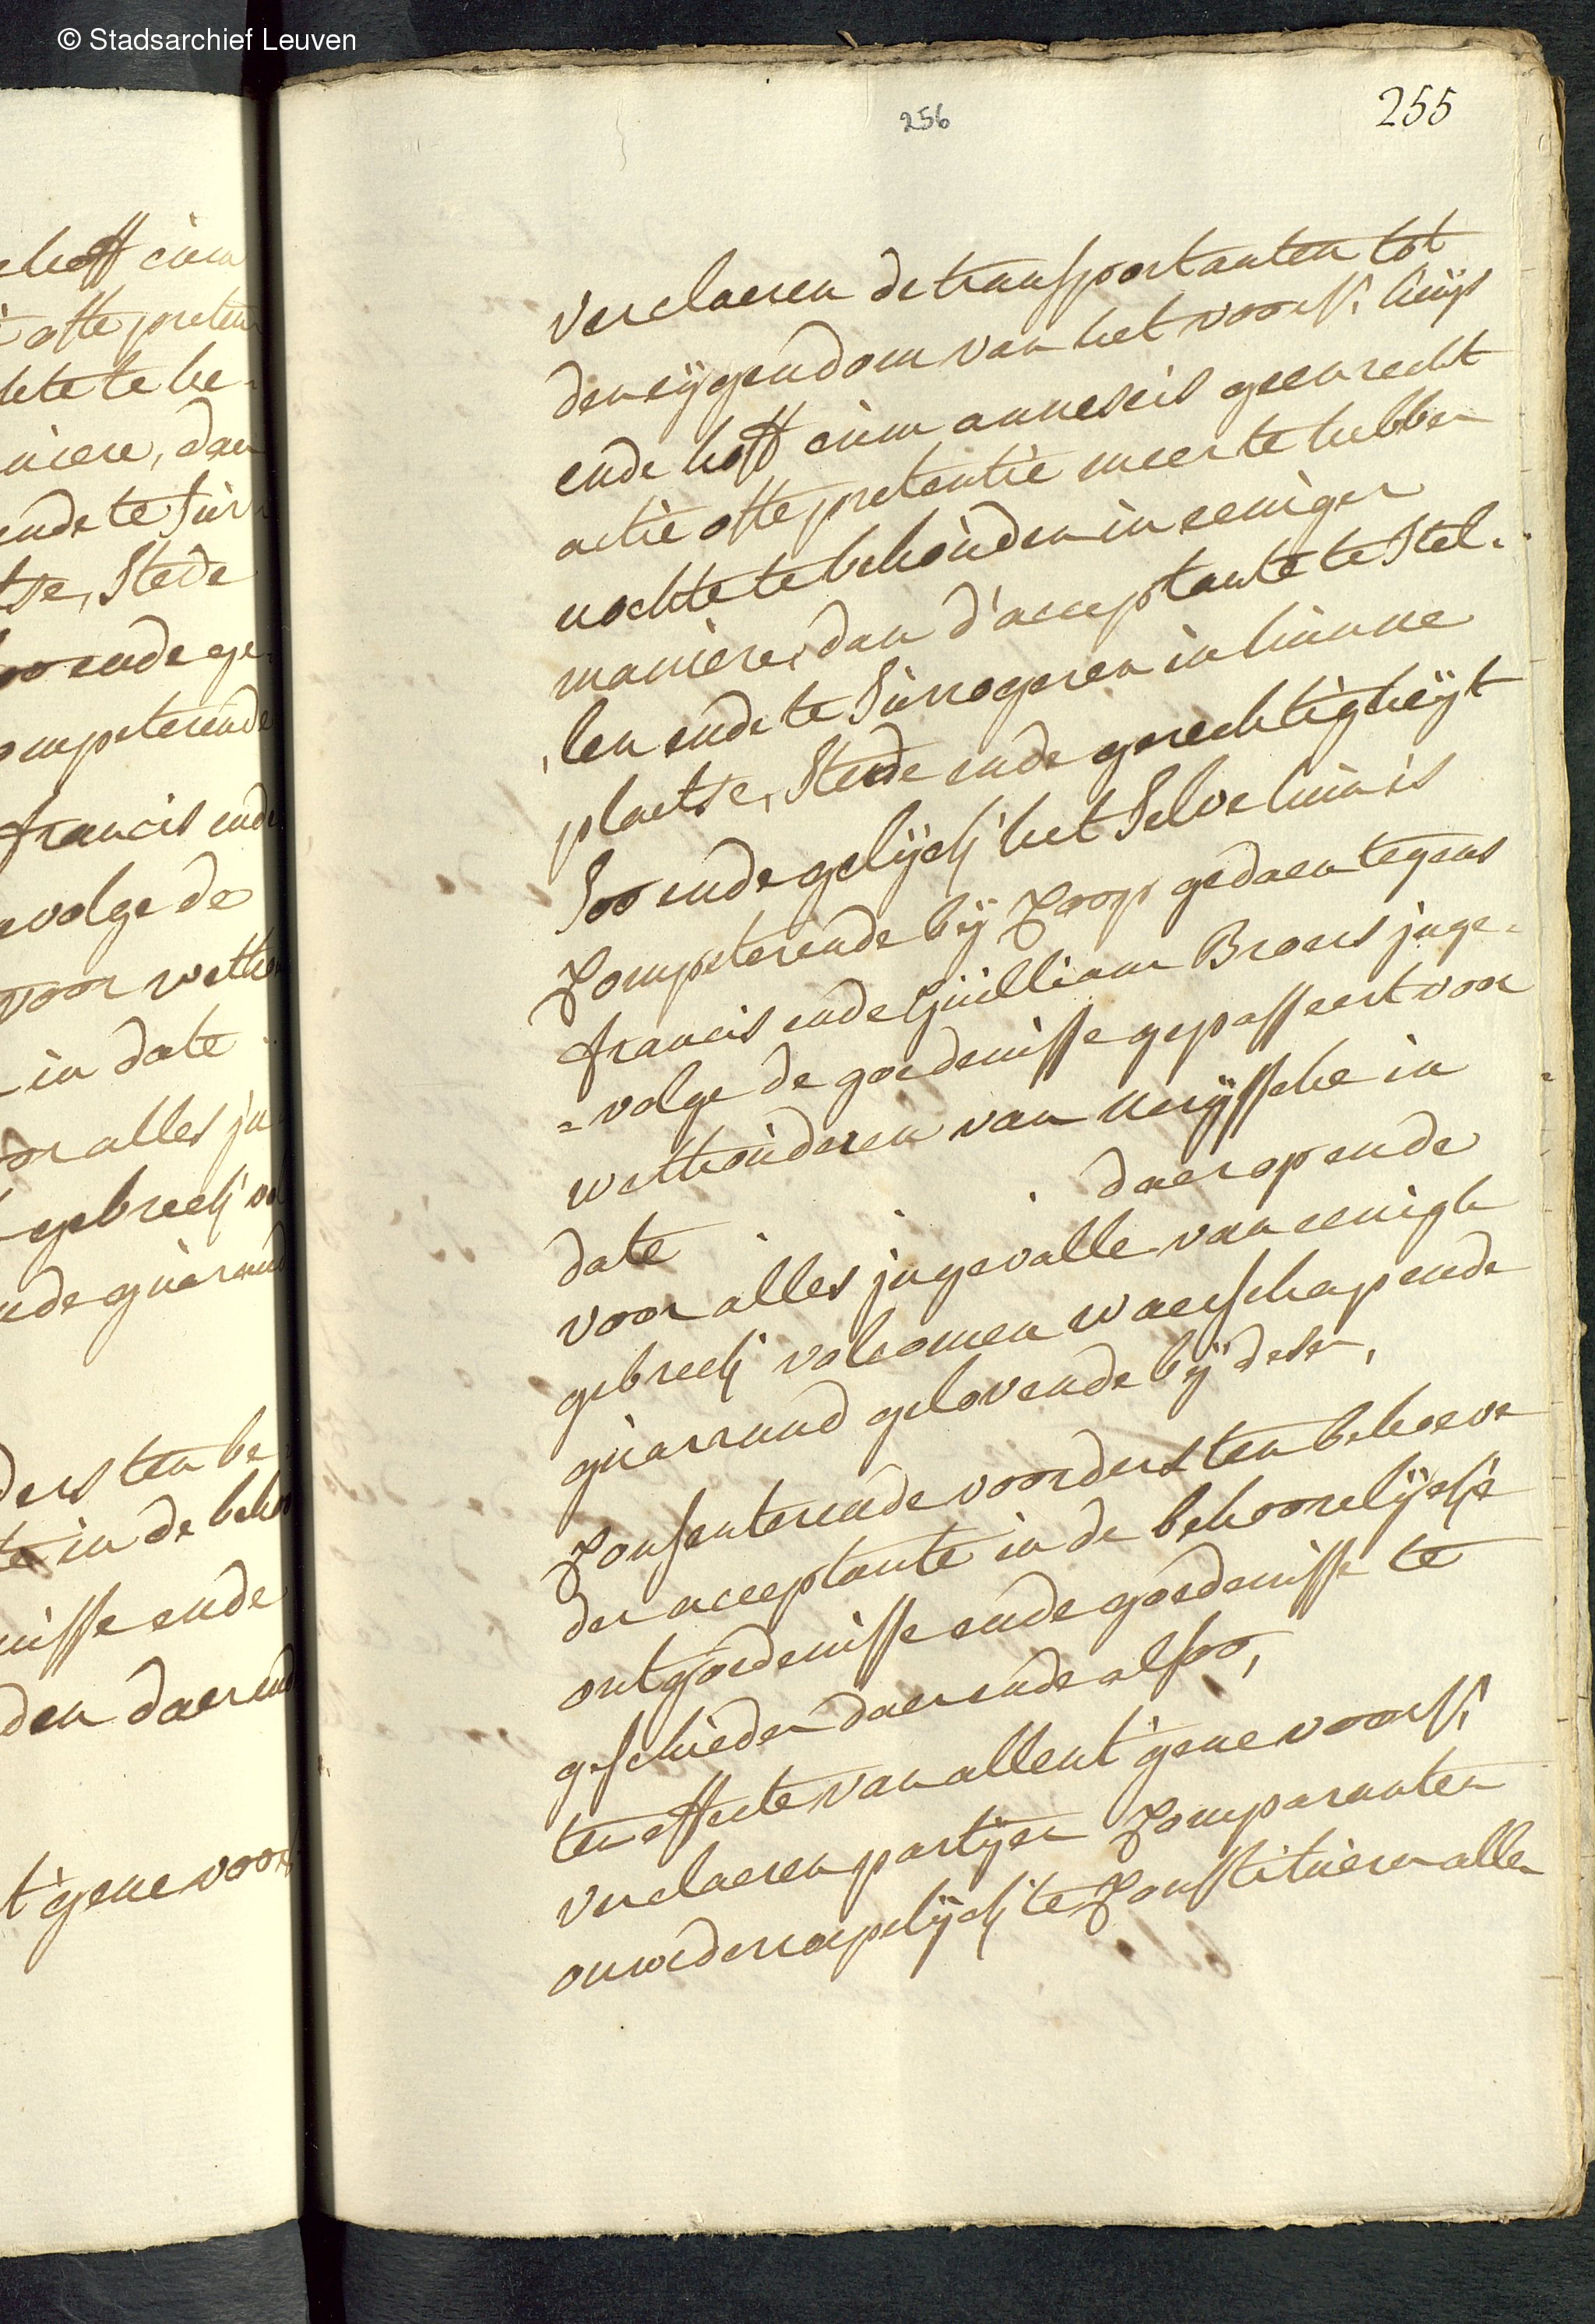 © Stadsarchief Leuven
256
255
hoff cum
ofte preten
hte te be-
niere, dan
ende te Sur
tse, Stede
oo ende ge-
ompeterende
francis ende
volge de
voor wetho
in date
or alles in
gebreck vol
nde guarand
ders ten be
te in de beho
nisse ende
den daer end
t'gene voors.
verclaeren de transportanten tot
den eijgendom van het voors. huijs
ende hoff cum annexeis geen recht
actie ofte pretentie meer te hebben
nochte te behouden in eeniger
maniere, dan d'acceptante te Stel-
,len ende te Surrogeren in hunne
plaetse, Stede ende gerechtigheijt
Soo ende gelijck het Selve hun is
Competerende bij Coop gedaen tegens
francis ende Guilliam Broers inge-
=volge de goedenisse gepasseert voor
wethouderen van Neijssche in
date daer op ende
voor alles ingevalle van eenigh
gebreck volcomen waerschap ende
guarrand gelovende bij desen,
Consenterende voorders ten behoeve
der acceptante in de behoorelijcke
ontgoedenisse ende goedenisse te
geschieden daer ende alsoo,
ten effecte van allen t'gene voors.
verclaeren partijen Comparanten
onwederroepelijck te Constitueren allen